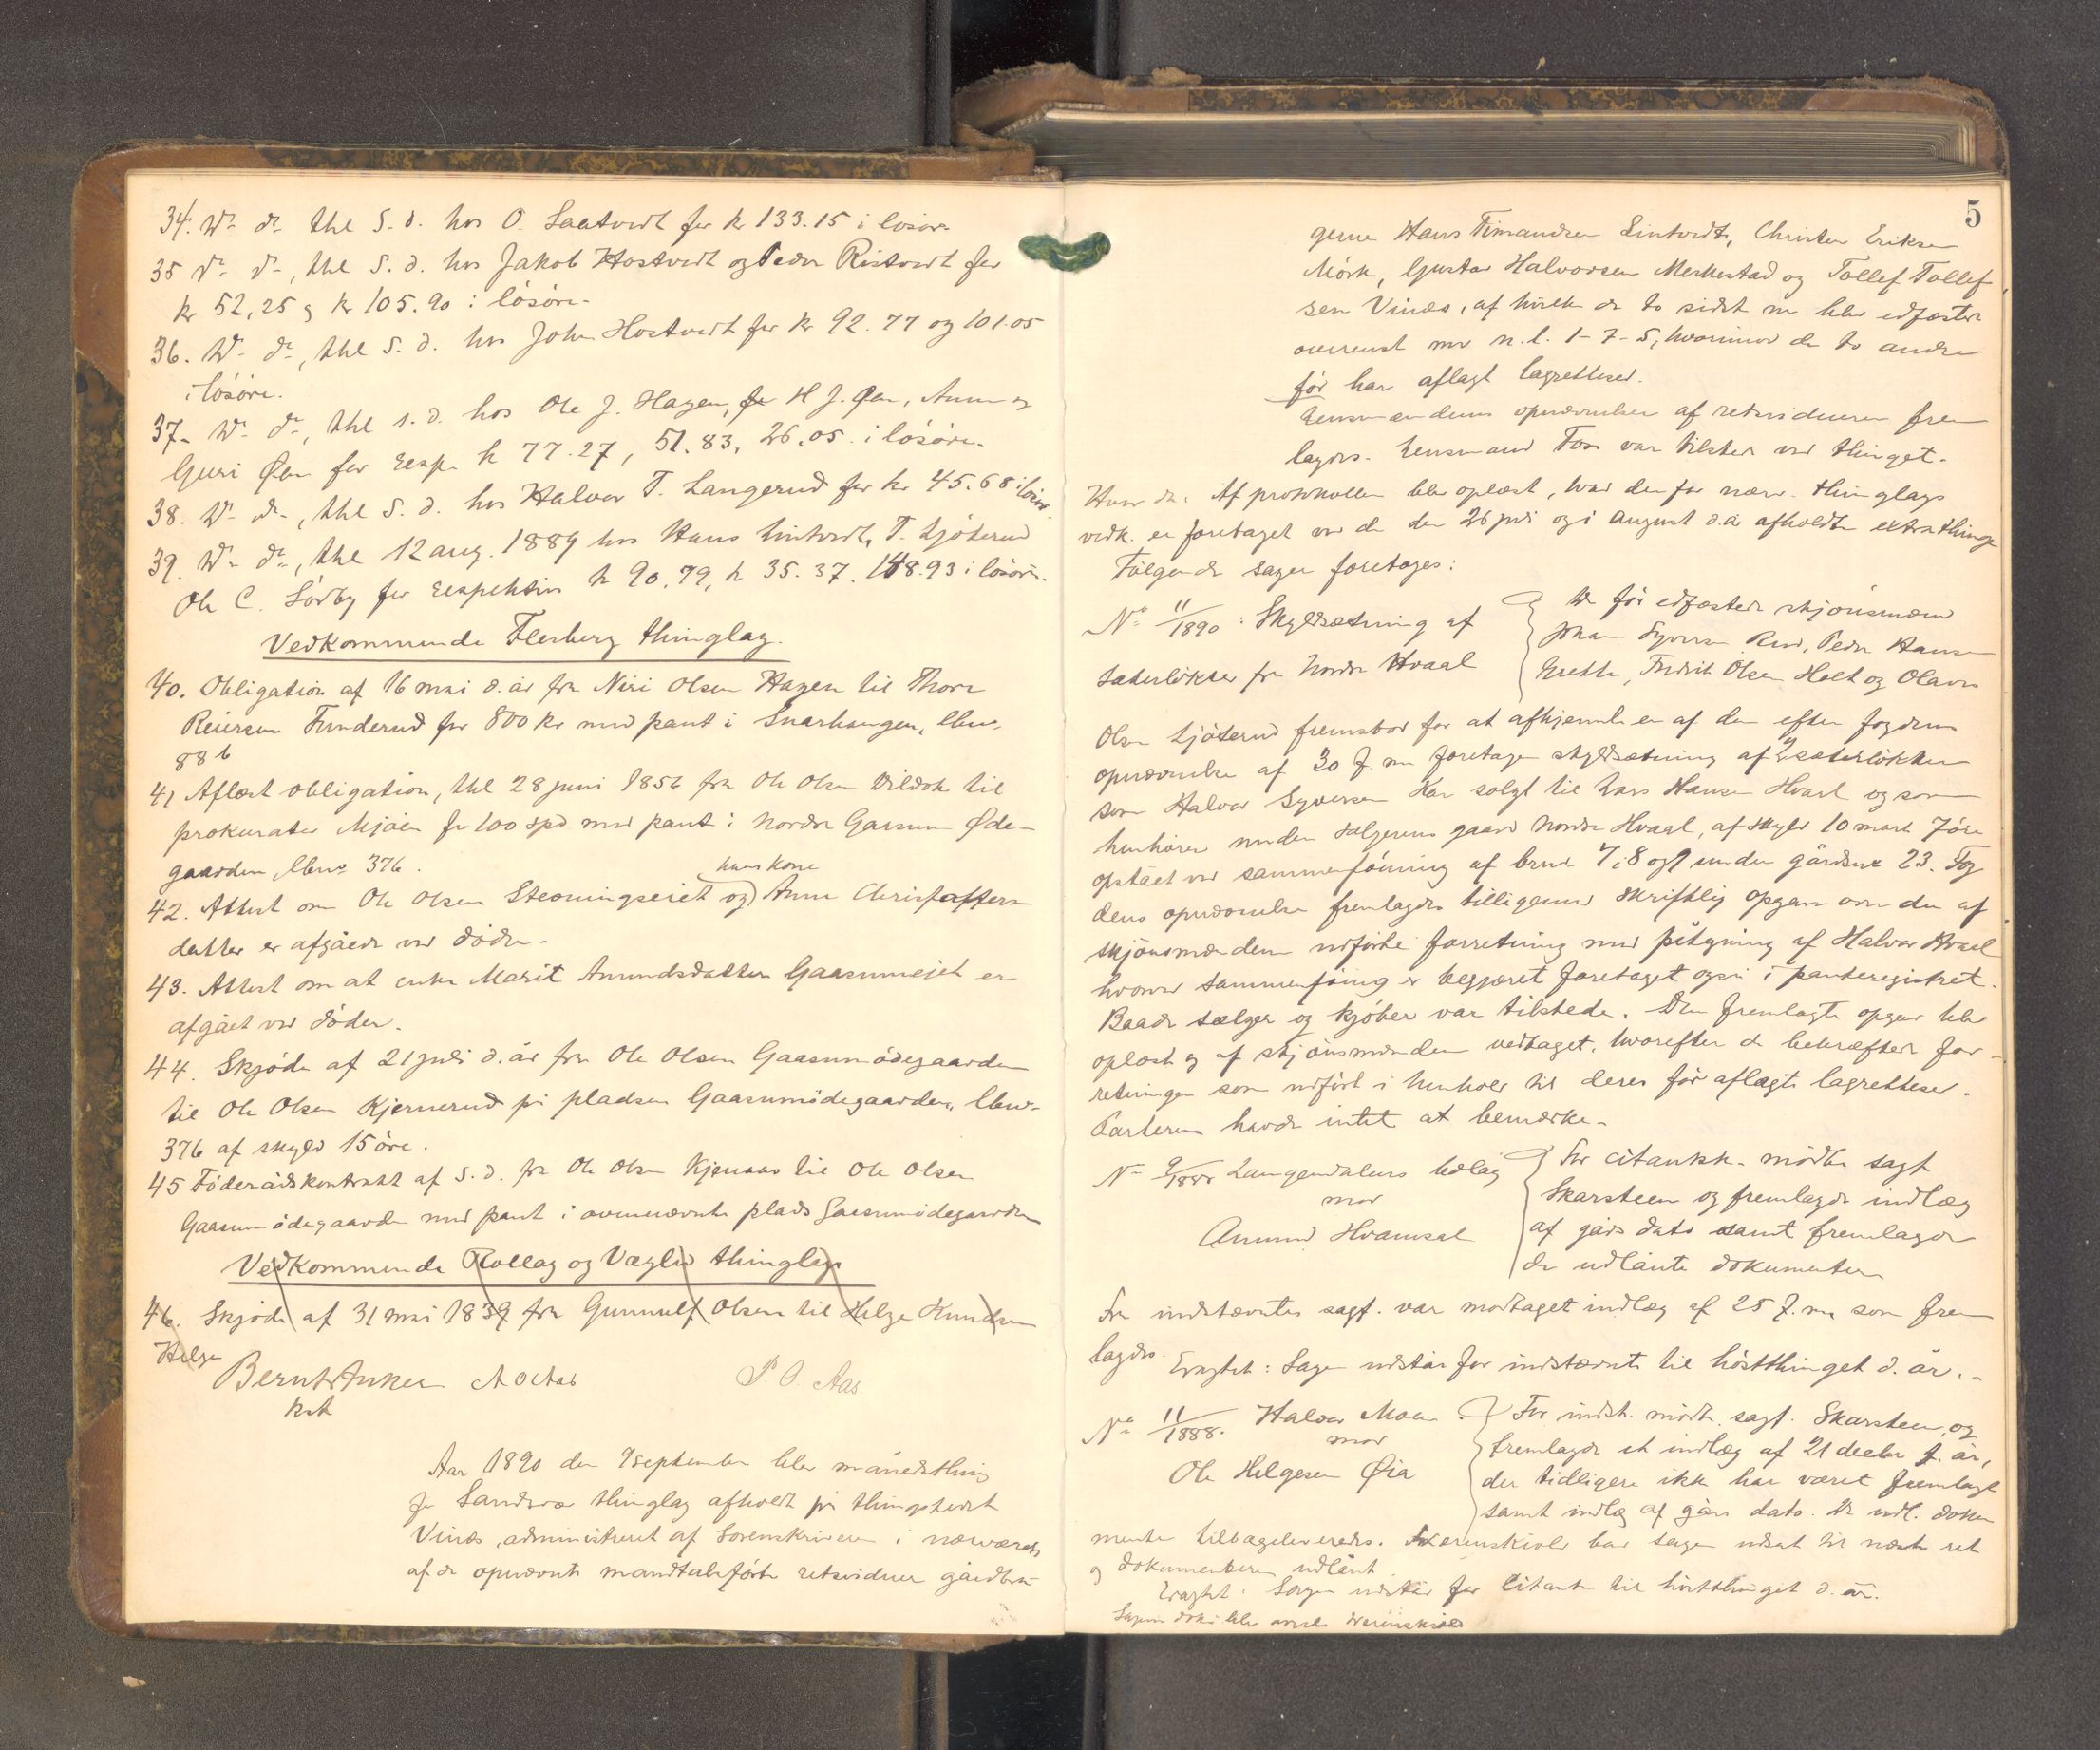 34. Do do thl s. d. hos O. Saatvedt for kr 133.15 i løsøre
35 Do do, thl s. d. hos Jakob Hostvedt og Peder Ristvedt for
kr 52,25 og kr 105.90 i løsøre-
36. Do do, thl s. d. hos John Hostvedt for kr 92.77 og 101.05
i løsøre.
37. Do do, thl s. d. hos Ole J. Hagen, H J. Øen, Anne og
Guri Øen for resp. kr 77.27, 51.83, 26.05 i løsøre-
38. Do do, thl s. d. hos Halvor T. Langerud for kr 45.68 i løsøre.
39. Do do, thl 12 aug. 1889 hos Hans Lintvedt, T. Ljøterud
Ole C. Sørby for respektive kr 90.79, kr 35.37. 148.93 i løsøre.
Vedkommende Flesberg thinglag.
40. Obligation af 16 mai d. år fra Niri Olsen Hagen til Thore
Reiersen Funderud for 800 kr med pant i Snarhaugen, lbnr
88 b
41 Aflæst obligation, thl 28 juni 1856 fra Ole Olsen til
prokurator Mjøen for 100 spd med pant i Nordre Gaasum Øde-
gaarden, lbnr 376.
hans kone
42. Attest om Ole Olsen og Anne Christoffers-
datter er afgåede ved døden-
43. Attest om at enke Marit Amundsdatter Gaasumeiet er
afgået ved døden.
44. Skjøde af 21 juli d. år fra Ole Olsen Gaasumødegaarden
til Ole Olsen Kjernerud på pladsen Gaasumødegaarden, lbnr-
376 af skyld 15 øre.
45 Føderådskontrakt af s. d. fra Ole Olsen til Ole Olsen
Gaasumødegaarden med pant i ovennævnte plads Gaasumødegaarden
Vedkommende Rollag og Væglid thinglag
46. Skjøde af 31 mai 1839 fra Gunnulf Olsen til Helge Knudsen
Helge
Bernt Anker A O Aas P. O. Aas
kst
Aar 1890 den 9 september blev månedsthing
for Sandsvær thinglag afholdt på thingstedet
Vinæs, administreret af Sorenskriveren i nærværelse
af de opnævnte mandtalsførte retsvidner gårdbru-
5
gerne Hans Timandsen Lintvedt, Christen Eriksen
Mørk, Gustav Halvorsen Merkestad og Tollef Tollef
sen Vinæs, af hvilke de to sidst nu blev edfæstede
overenst med n. l. 1-7-5, hvorimod de to andre
før har aflagt lagrettesed.
Lensmandens opnævnelse af retsvidnerne frem
lagdes. Lensmand Foss var tilstede ved thinget.
Af protokollen blev oplæst, hvad der for nærv. thinglags
vedk. er foretaget ved de den 26 juli og i august d. år afholdte extrathinge
Følgende sager foretoges:
No 11/1890: Skyldsætning af
Sæterløkker fra Nordre Hvaal
De før edfæstede skjønsmænd
Johan Syversen Rud, Peder Hansen
Grette, Fredrik Olsen Holt og Olavus
Olsen Ljøterud fremstod for at afhjemle en af dem efter fogdens
opnævnelse af 30 f. m foretagen skyldsætning af 2 sæterløkker
som Halvor Syversen har solgt til Lars Hansen Hvaal og som
henhører under sælgerens gaard Nordre Hvaal, af skyld 10 mark 7 øre
opstået ved sammenføining af brno 7, 8 og 9 under gårdsno 23. Fog
dens opnævnelse fremlagdes tilligemed skriftlig opgave over den af
skjønsmændene udførte forretning med påtegning af Halvor Hvaal
hvorved sammenføining er begjæret foretaget også i panteregistret.
Baade sælger og kjøber var tilstede. Den fremlagte opgave blev
oplæst og af skjønsmændene vedtaget, hvorefter de bekræftede for-
retningen som udført i henhold til deres før aflagte lagrettesed.
Parterne havde intet at bemærke-
No 9/1888 Langendalens bolag
mod
Amund Hvamsal
For citantsk. mødte sagf
Skarsteen og fremlagde indlæg
af gårs dato samt fremlagde
de udlånte dokumenter
Fra indstævntes sagf. var modtaget indlæg af 25 f. m, som frem
lagdes.
Eragtet: Sagen udstår for indstævnte til høstthinget d. år.-
No 11/1888. Halvor Moen
mod
Ole Helgesen Øia
For indst. mødte sagf. Skarsteen, og
fremlagde et indlæg af 21 decbr f. år,
der tidligere ikke har været fremlagt
samt indlæg af gårs dato. De udl. doku
menter tilbageleveredes. Werenskiold bad sagen udsat til næste ret
og dokumenterne udlånt.
Eragtet: Sagen udstår for citanten til høstthinget d. år.
Sagens dok. blev Werenskiold